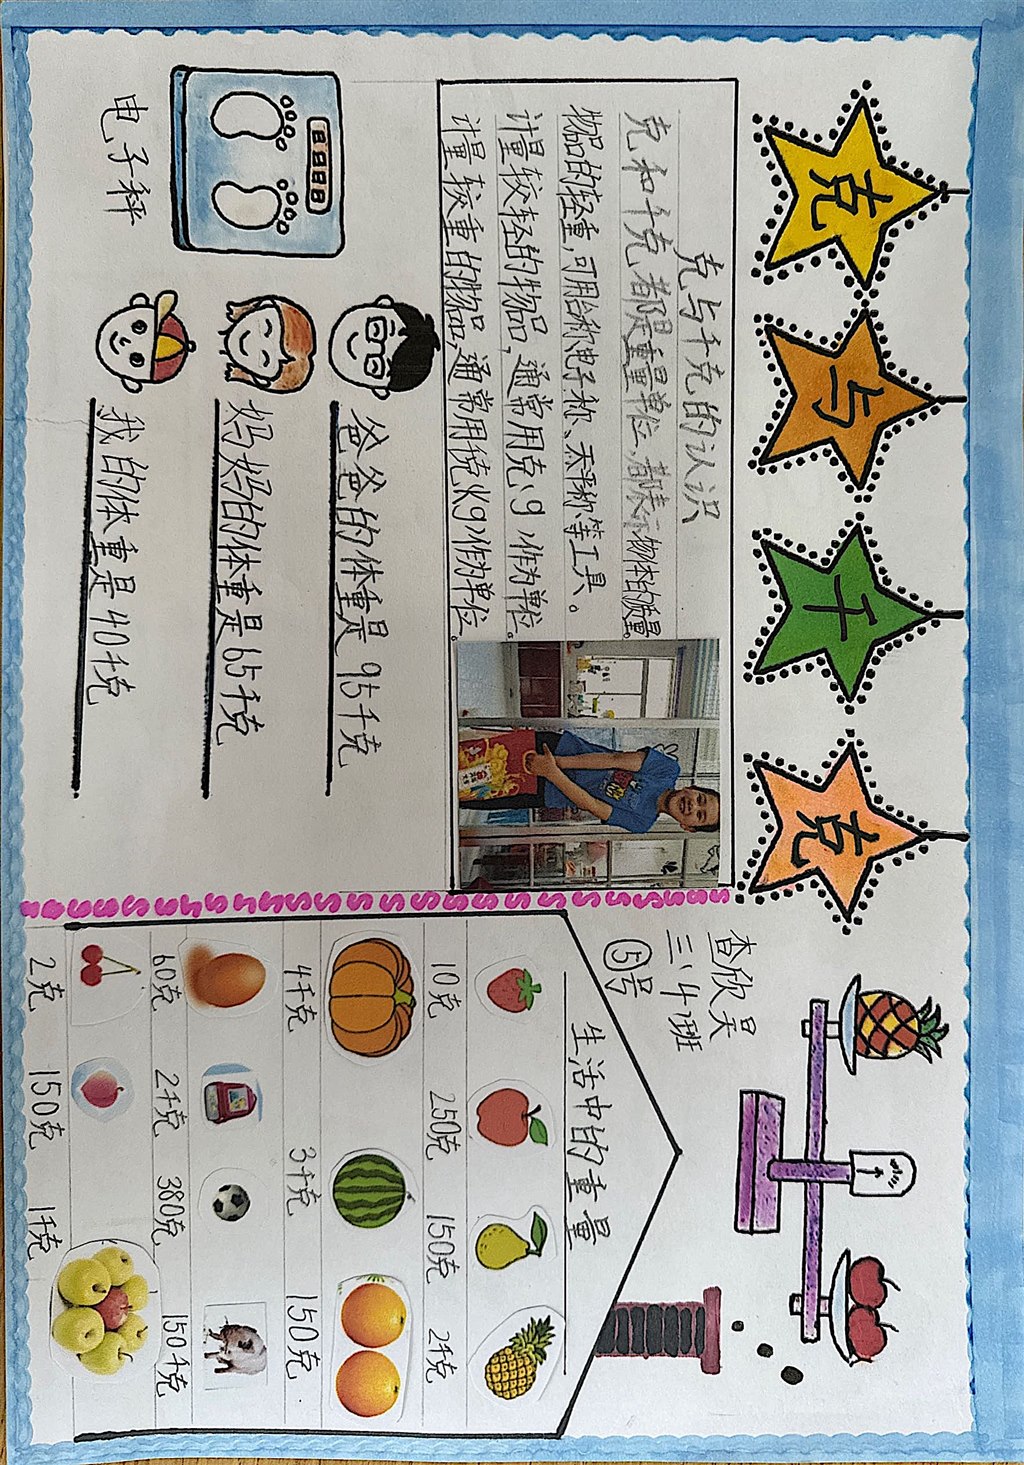 克与千克
克与千克的认识
克和千克都是重量单位,都表示物体的质量。
物品的轻重,可用台称、电子称、天平称等工具。
计量较轻的物品,通常用克(g)作为单位。
计量较重的物品,通常用千克(kg)作为单位。
电子秤
8888
爸爸的体重是95千克
妈妈的体重是65千克
我的体重是40千克
查欣昊
三、4班
⑤号
生活中的重量
10克 250克 150克 2千克
4千克 3千克 150克
60克 2千克 380克 150千克
2克 150克 1千克